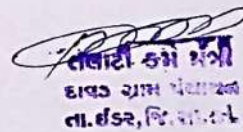 તલાટી કમ મંત્રી
દાવડ ગ્રામ પંચાયત
તા.ઈડર, જિ.સા.કાં.